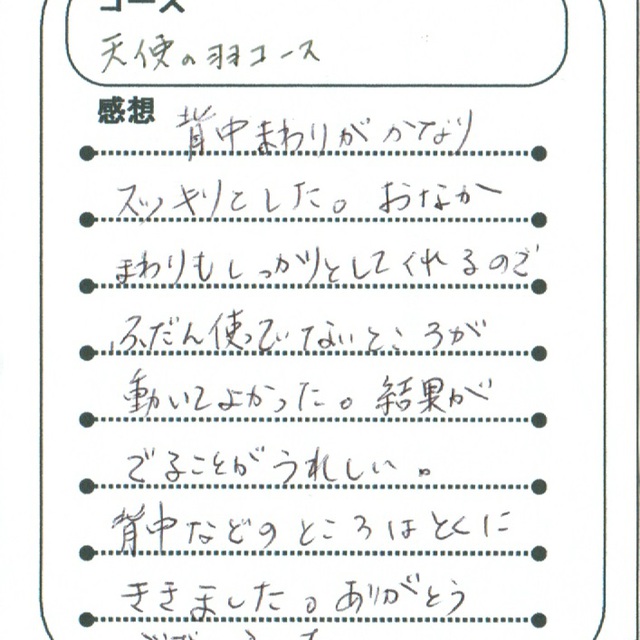 コース
天使の羽コース
感想 背中まわりが かなり
スッキリとした。おなか
まわりもしっかりとしてくれるので
ふだん使っていないところが
動いてよかった。結果が
でることがうれしい。
背中などのところはとくに
ききました。ありがとう